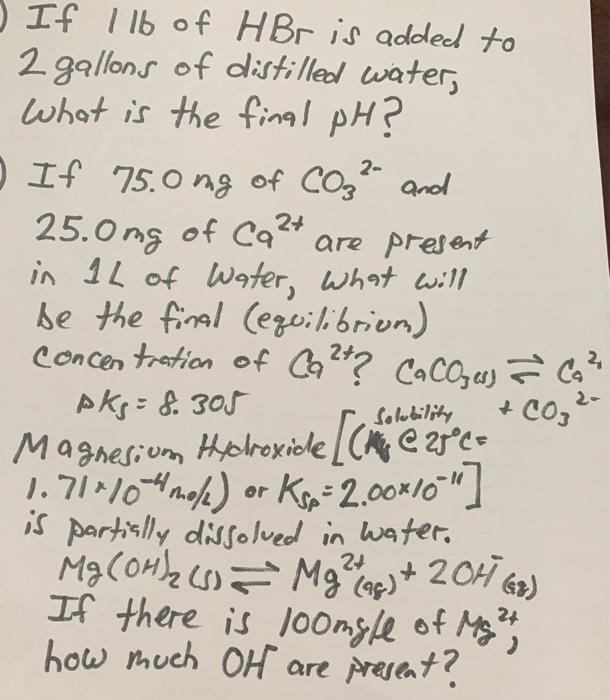 ) If 1 lb of HBr is added to
2 gallons of distilled water,
What is the final pH?
) If 75.0 mg of CO₃²⁻ and
25.0mg of Ca²⁺ are present
in 1L of Water, what will
be the final (equilibrium)
Concentration of Ca²⁺? CaCO₃(s) ⇌ Ca²⁺
pKs = 8.305 + CO₃²⁻
Solubility
Magnesium Hydroxide [( @ 25°C =
1.71×10⁻⁴ mol/L) or Ksp = 2.00×10⁻¹¹]
is partially dissolved in water.
Mg(OH)₂ (s) ⇌ Mg²⁺(aq) + 2OH⁻(aq)
If there is 100mg/L of Mg²⁺,
how much OH⁻ are present?